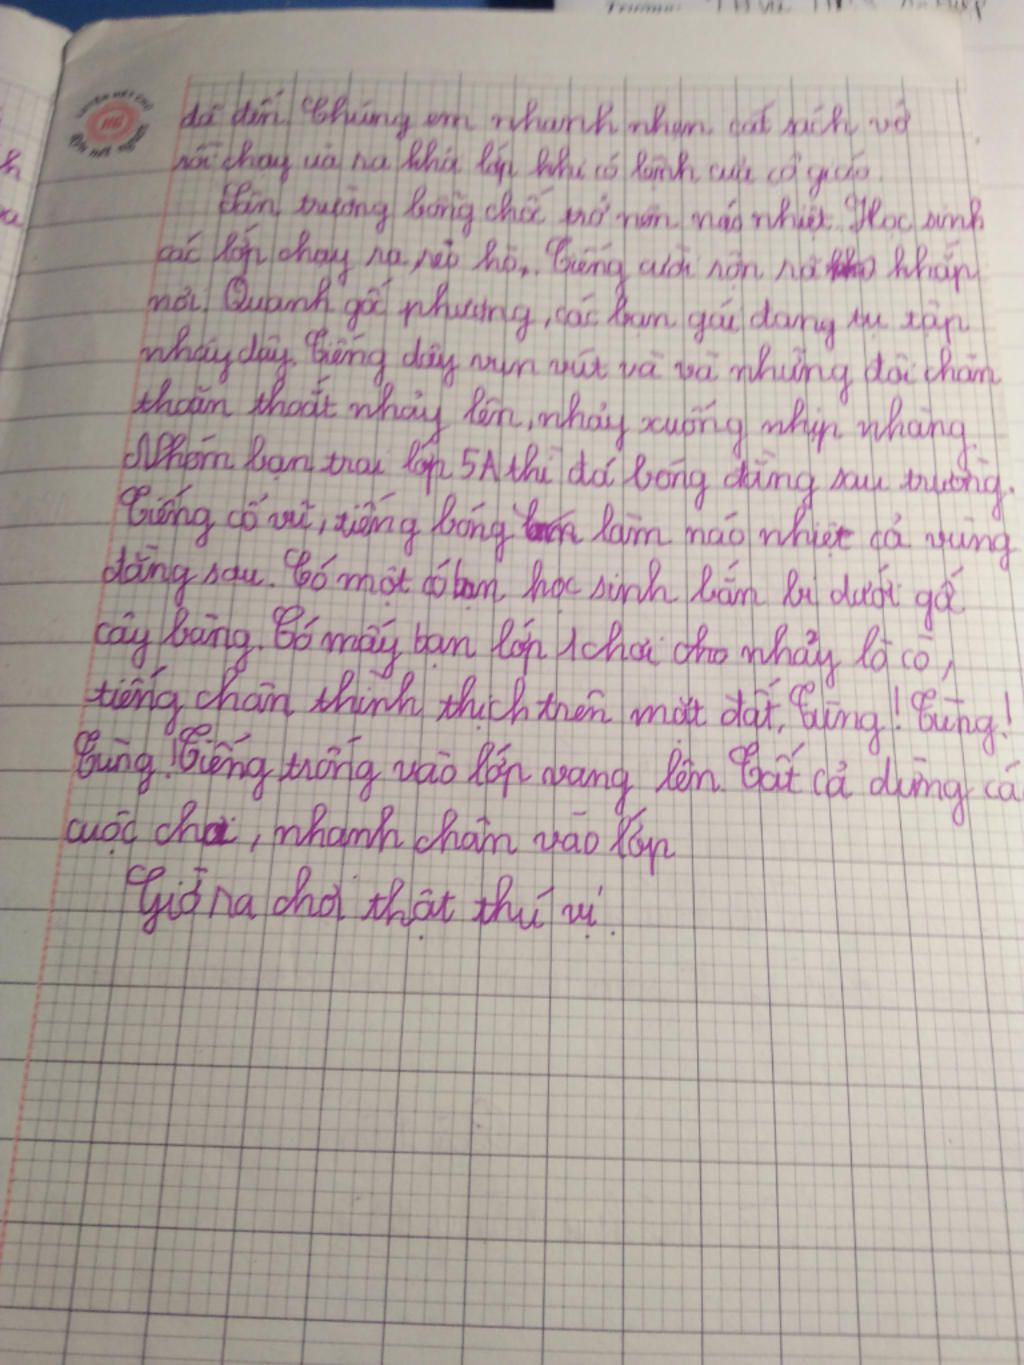 đã đến. Chúng em nhanh nhẹn cất sách vở
rồi chạy và ra khỏi lớp khi có lệnh của cô giáo.
Sân trường bỗng chốc trở nên náo nhiệt. Học sinh
các lớp chạy ra reo hò. Tiếng cười rộn rã khắp
nơi. Quanh gốc phượng, các bạn gái đang tụ tập
nhảy dây. Tiếng dây vun vút và và những đôi chân
thoăn thoắt nhảy lên, nhảy xuống nhịp nhàng.
Nhóm bạn trai lớp 5A thì đá bóng đằng sau trường.
Tiếng cổ vũ, tiếng bóng làm náo nhiệt cả vùng
đằng sau. Có một có bạn học sinh bắn bi dưới gố
cây bàng. Có mấy bạn lớp 1 chơi cho nhảy lò cò,
tiếng chân thình thịch trên mặt đất. Tùng! Tùng!
Tùng! Tiếng trống vào lớp vang lên. Tất cả dừng cá
cuộc chơi, nhanh chân vào lớp
Giờ ra chơi thật thú vị.